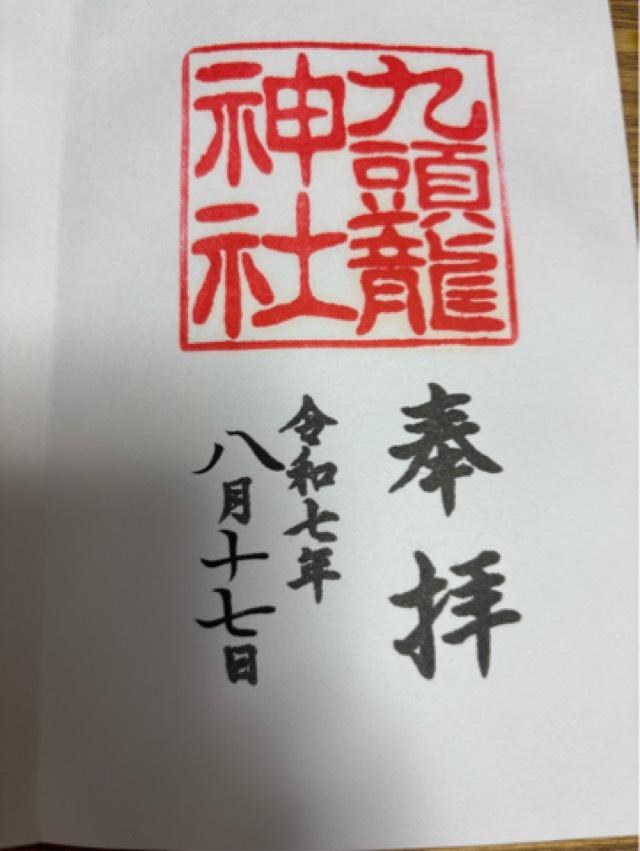 九頭龍
神社
奉拝
令和七年
八月十七日